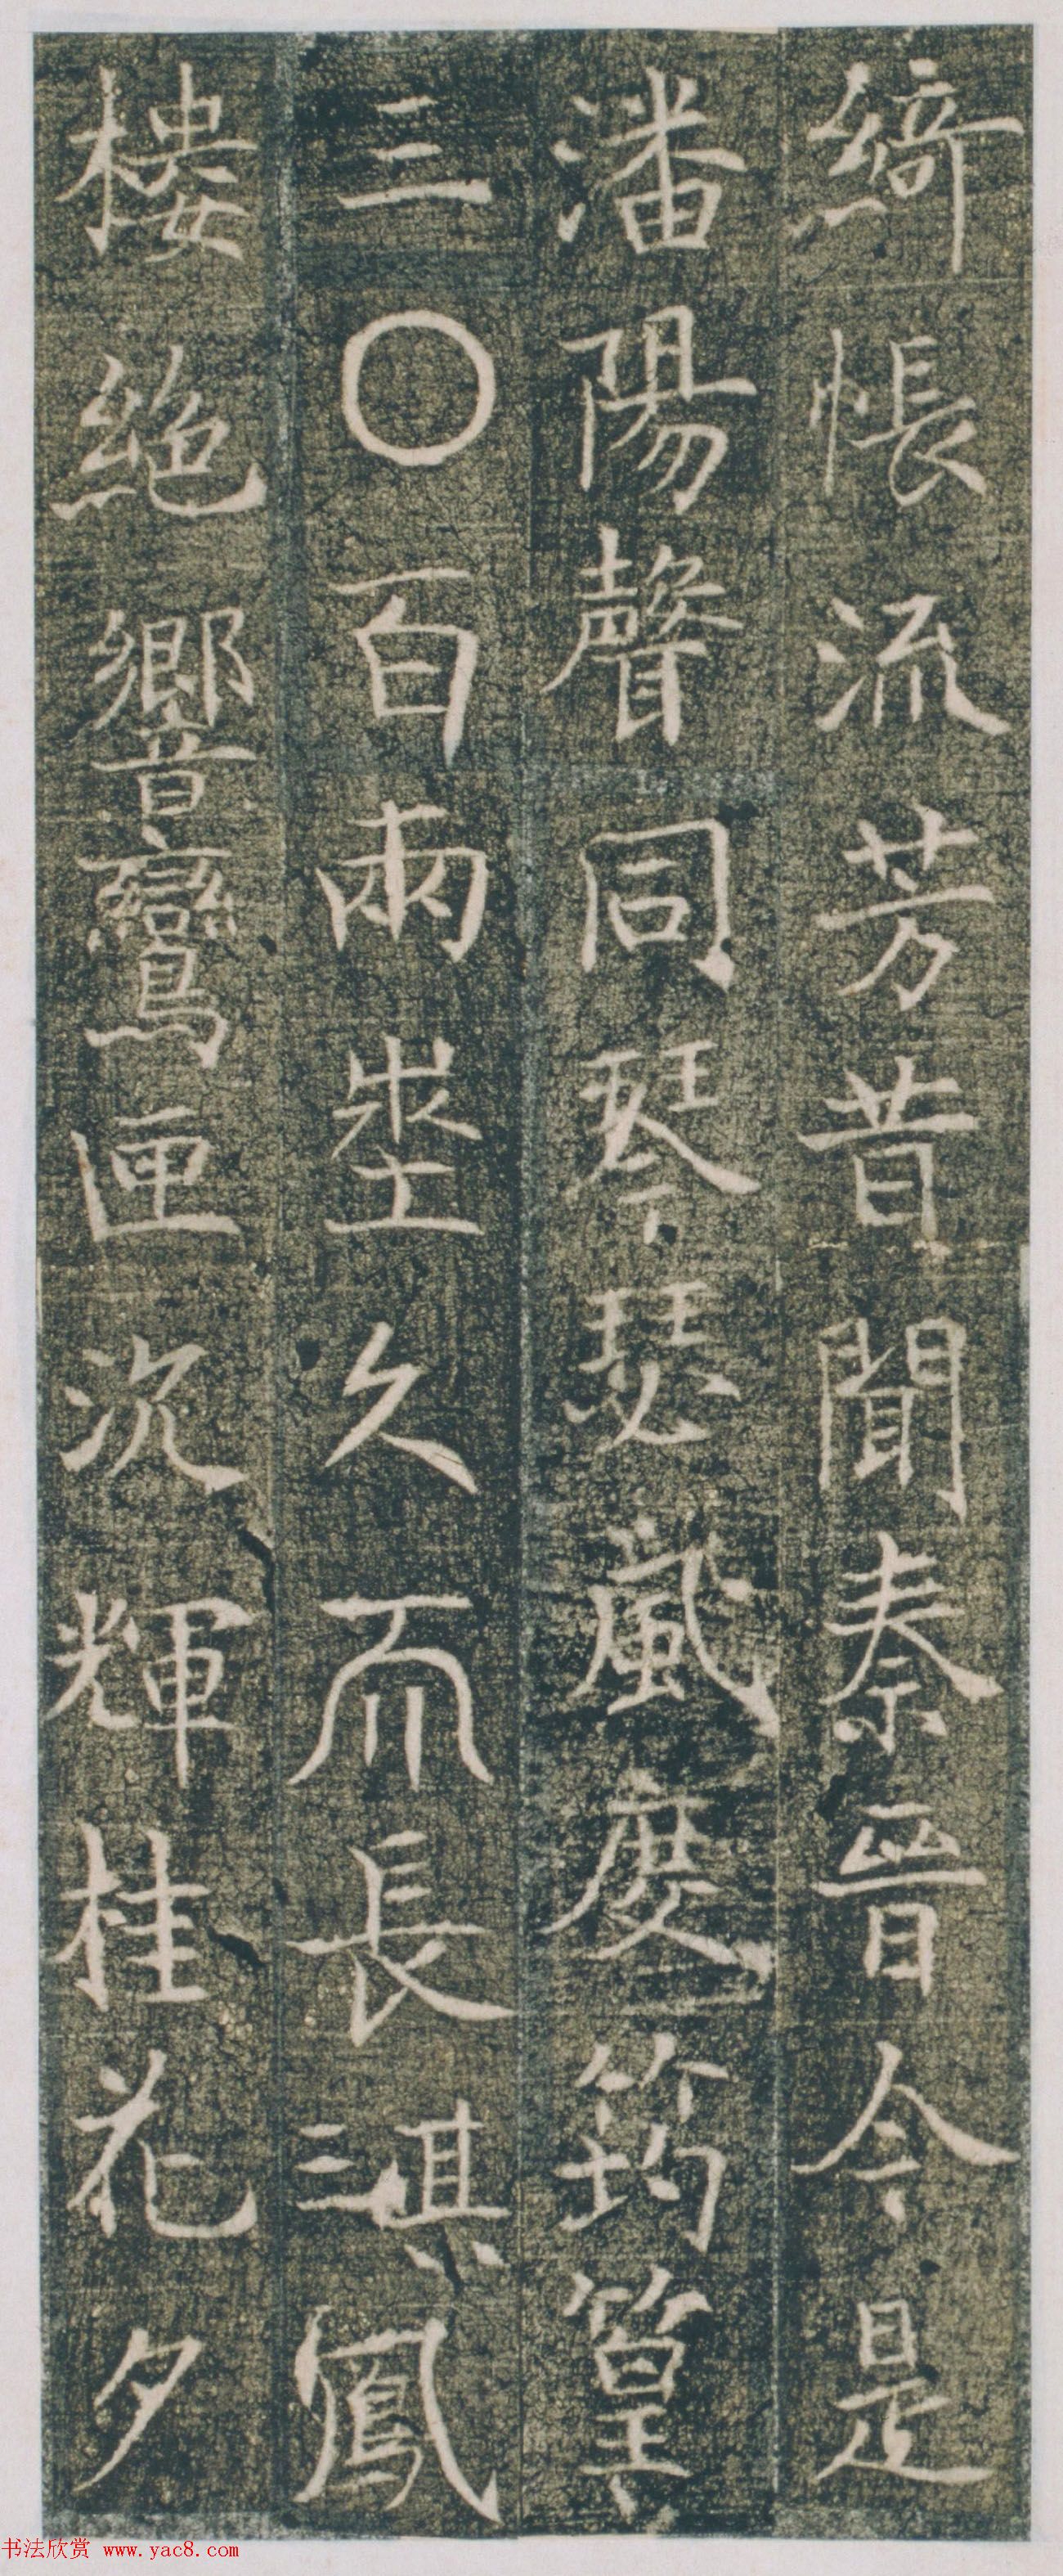 綺帳流芳昔聞秦晉今是
潘陽聲同琴瑟風度筠篁
三〇百兩埊久𠀑長其三鳳
樓絕響鸞匣沉輝桂花夕
书法欣赏 www.yac8.com